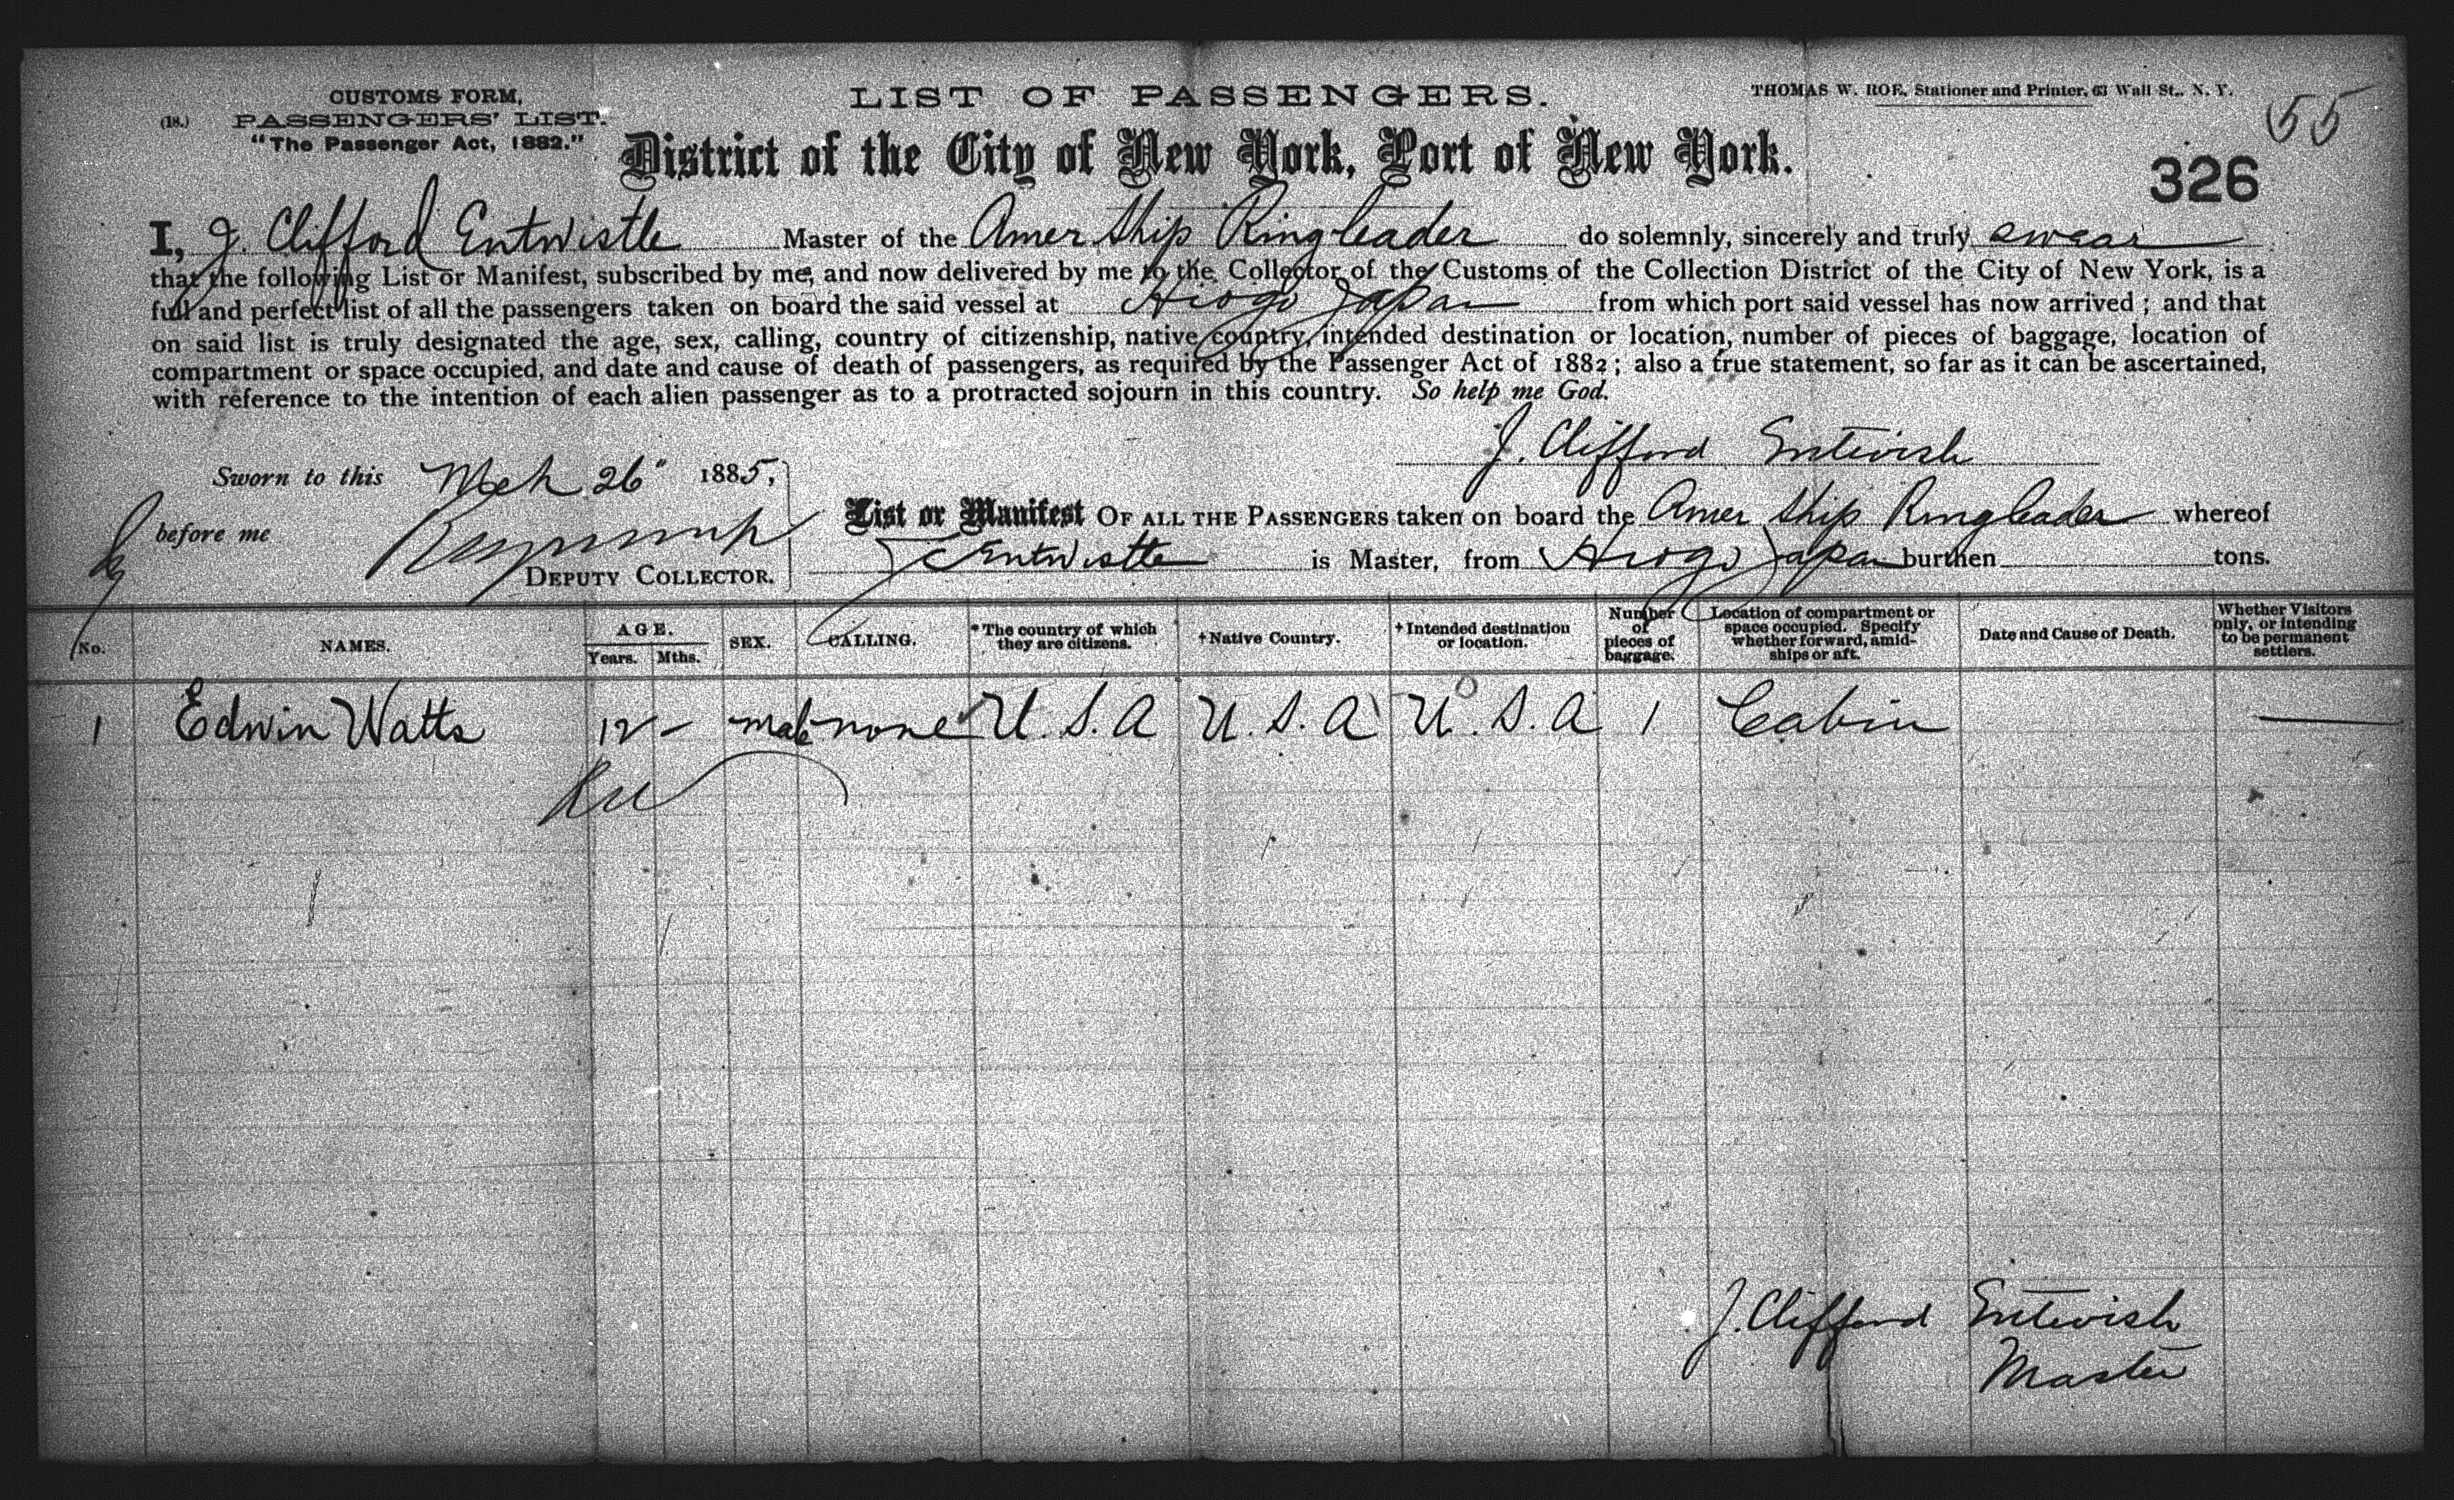 CUSTOMS FORM,
(18.) PASSENGERS' LIST.
"The Passenger Act, 1882."
LIST OF PASSENGERS.
THOMAS W. ROE, Stationer and Printer, 63 Wall St., N. Y.
55
District of the City of New York, Port of New York.
326
I, J. Clifford Entwistle Master of the Amer Ship Ringleader do solemnly, sincerely and truly swear
that the following List or Manifest, subscribed by me, and now delivered by me to the Collector of the Customs of the Collection District of the City of New York, is a
full and perfect list of all the passengers taken on board the said vessel at Hiogo Japan from which port said vessel has now arrived; and that
on said list is truly designated the age, sex, calling, country of citizenship, native country, intended destination or location, number of pieces of baggage, location of
compartment or space occupied, and date and cause of death of passengers, as required by the Passenger Act of 1882; also a true statement, so far as it can be ascertained,
with reference to the intention of each alien passenger as to a protracted sojourn in this country. So help me God.
J. Clifford Entwish
Sworn to this Mch 26" 1885,
before me
DEPUTY COLLECTOR.
List or Manifest OF ALL THE PASSENGERS taken on board the Amer Ship Ringleader whereof
J C Entwistle is Master, from Hiogo Japan burthen tons.
No. NAMES. AGE. Years. Mths. SEX. CALLING. *The country of which they are citizens. †Native Country. †Intended destination or location. Number of pieces of baggage. Location of compartment or space occupied. Specify whether forward, amidships or aft. Date and Cause of Death. Whether Visitors only, or intending to be permanent settlers.
1 Edwin Watts 12 – male none U.S.A U.S.A U.S.A 1 Cabin —
J. Clifford Entwish
Master